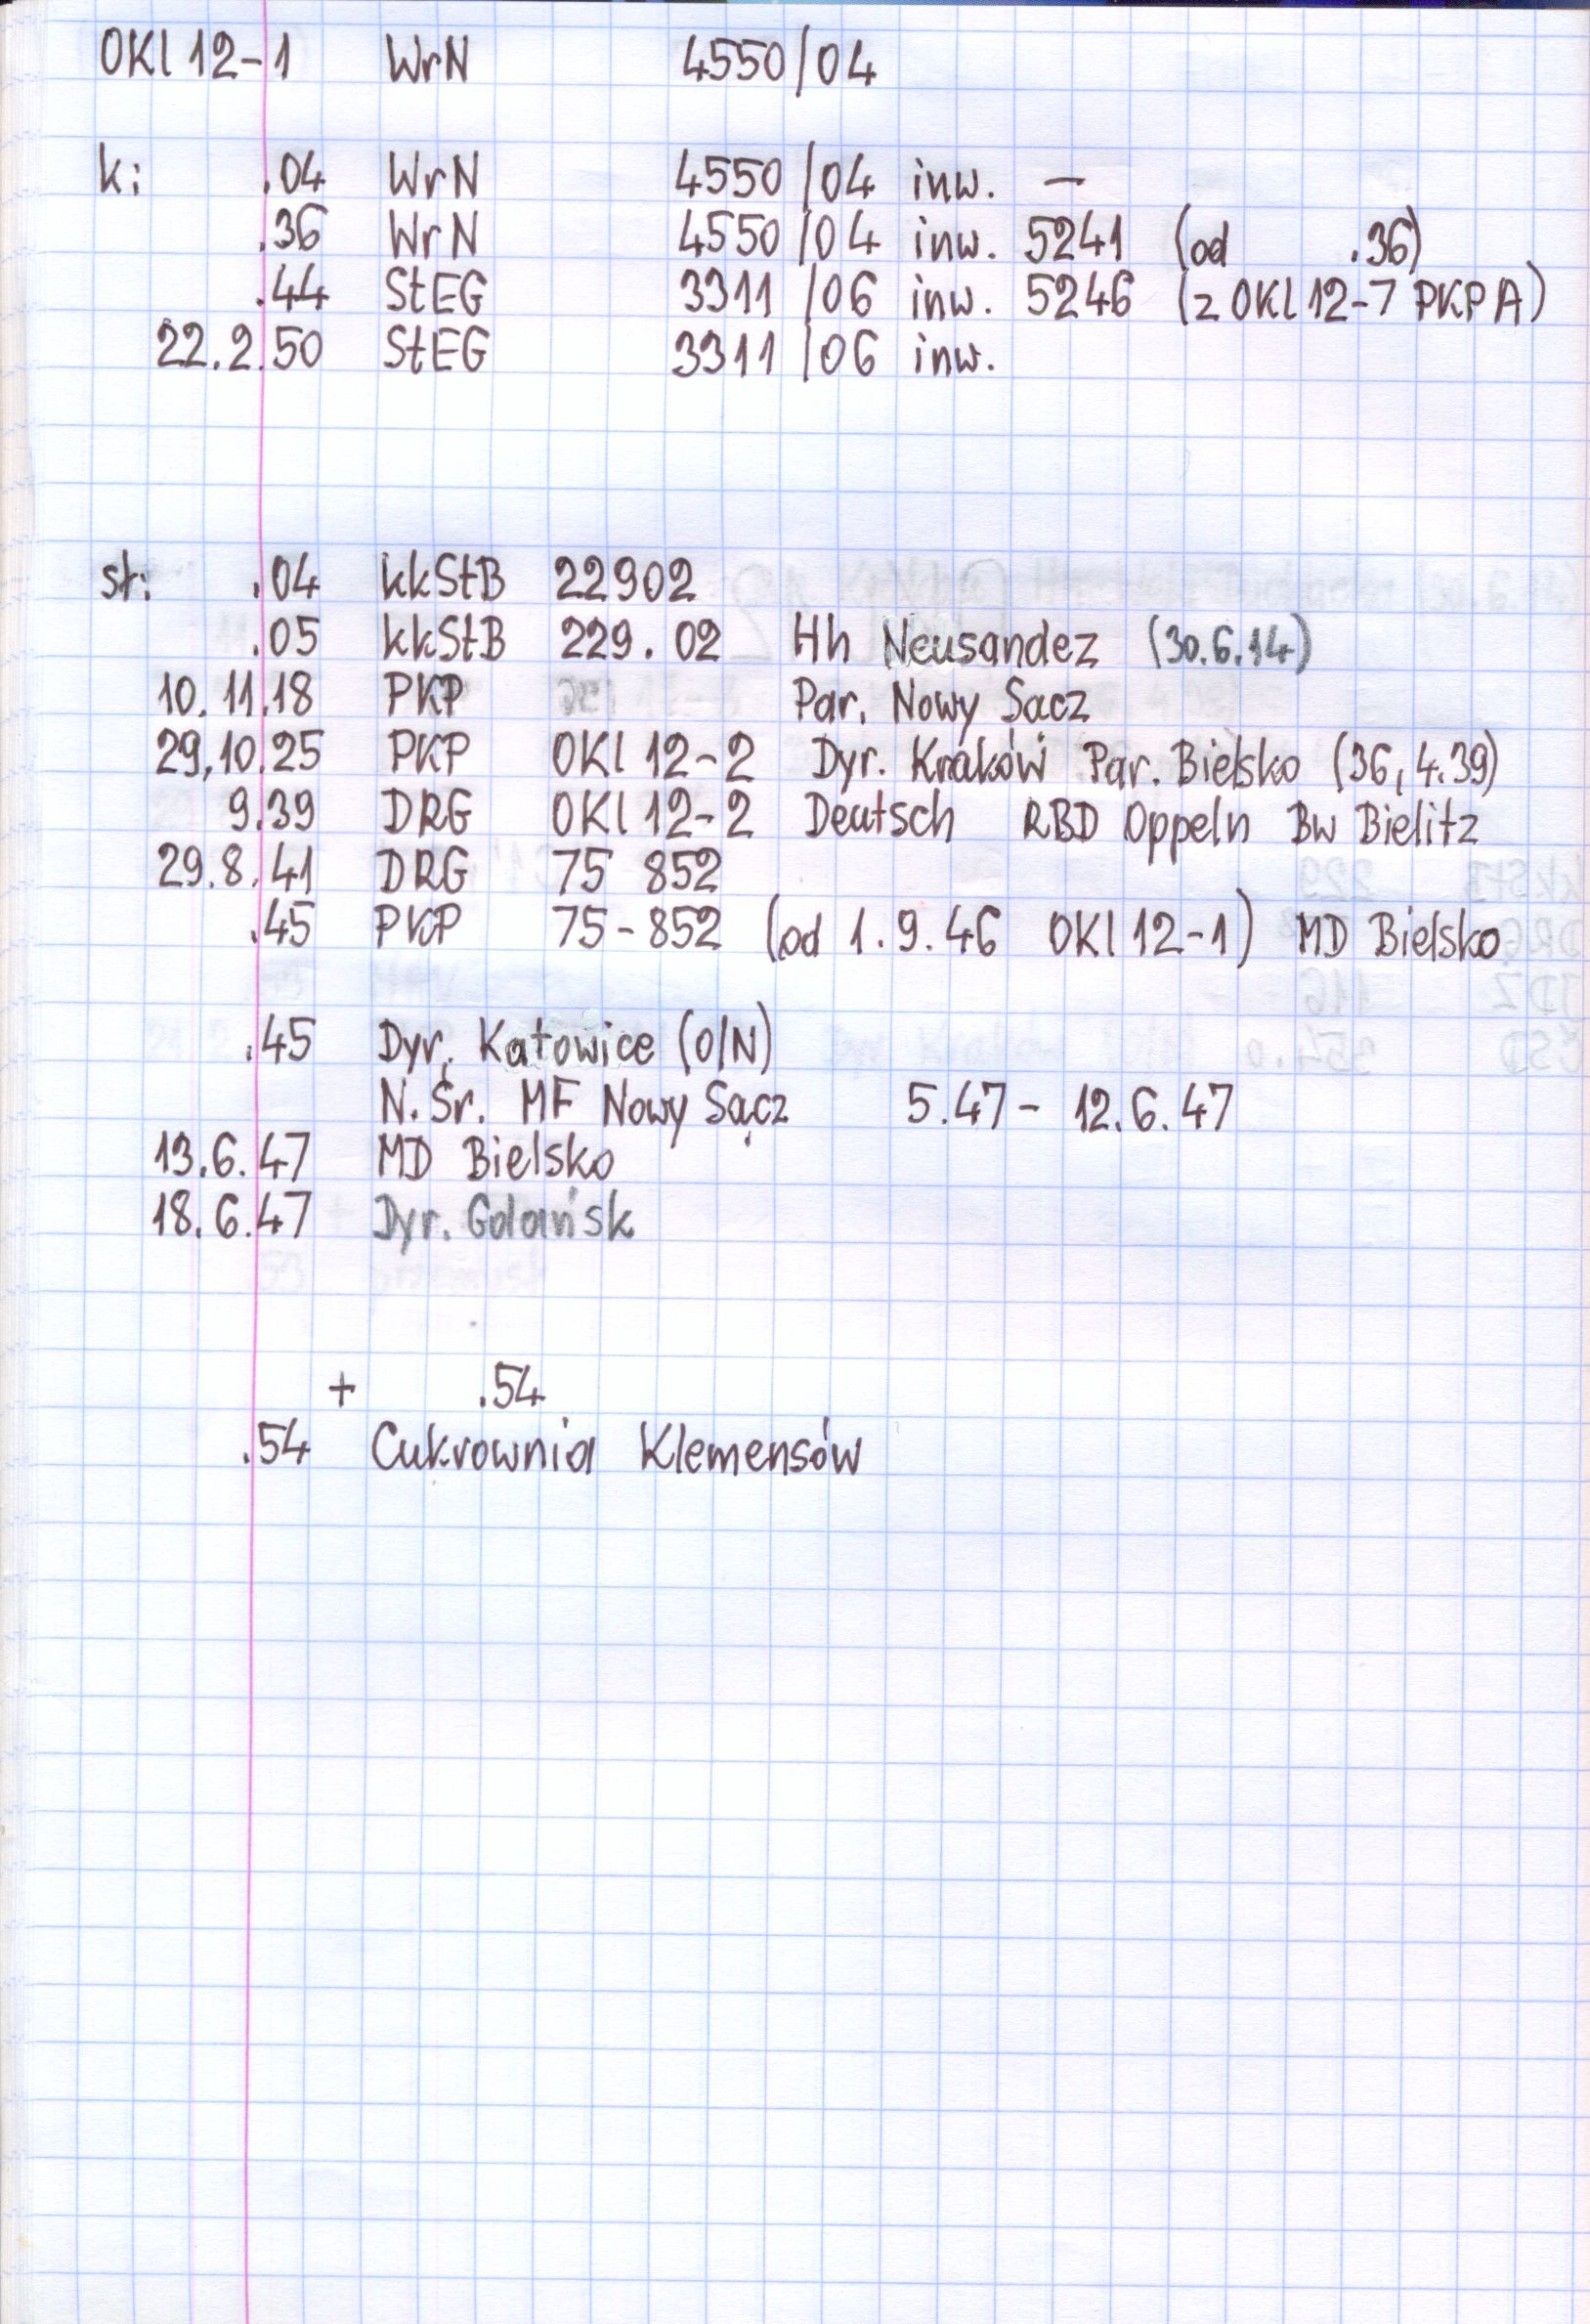 OKl 12-1 WrN 4550/04
k: .04 WrN 4550/04 inw. —
.36 WrN 4550/04 inw. 5241 (od .36)
.44 StEG 3311/06 inw. 5246 (z OKl 12-7 PKP A)
22.2.50 StEG 3311/06 inw.
st: .04 kkStB 22902
.05 kkStB 229.02 Hh Neusandez (30.6.14)
10.11.18 PKP Par. Nowy Sącz
29.10.25 PKP OKl 12-2 Dyr. Kraków Par. Bielsko (36, 4.39)
9.39 DRG OKl 12-2 Deutsch RBD Oppeln Bw Bielitz
29.8.41 DRG 75 852
.45 PKP 75-852 (od 1.9.46 OKl 12-1) MD Bielsko
.45 Dyr. Katowice (O/N)
N.Śr. MF Nowy Sącz 5.47 - 12.6.47
13.6.47 MD Bielsko
18.6.47 Dyr. Gdańsk
+ .54
.54 Cukrownia Klemensów